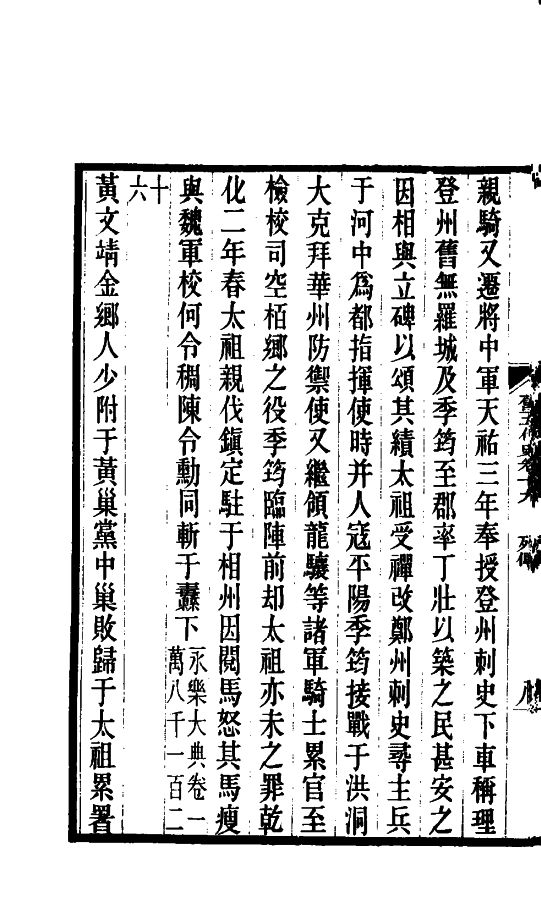 親騎又遷將中軍天祐三年奉授登州刺史下車稱理
登州舊無羅城及季筠至郡率丁壯以築之民甚安之
因相與立碑以頌其績太祖受禪改鄭州刺史尋主兵
于河中爲都指揮使時并人寇平陽季筠接戰于洪洞
大克拜華州防禦使又繼領龍驤等諸軍騎士累官至
檢校司空栢鄉之役季筠臨陣前却太祖亦未之罪乾
化二年春太祖親伐鎭定駐于相州因閱馬怒其馬瘦
與魏軍校何令稠陳令勳同斬于纛下永樂大典卷一
萬八千一百二
十
六
黃文靖金鄉人少附于黃巢黨中巢敗歸于太祖累署
列傳